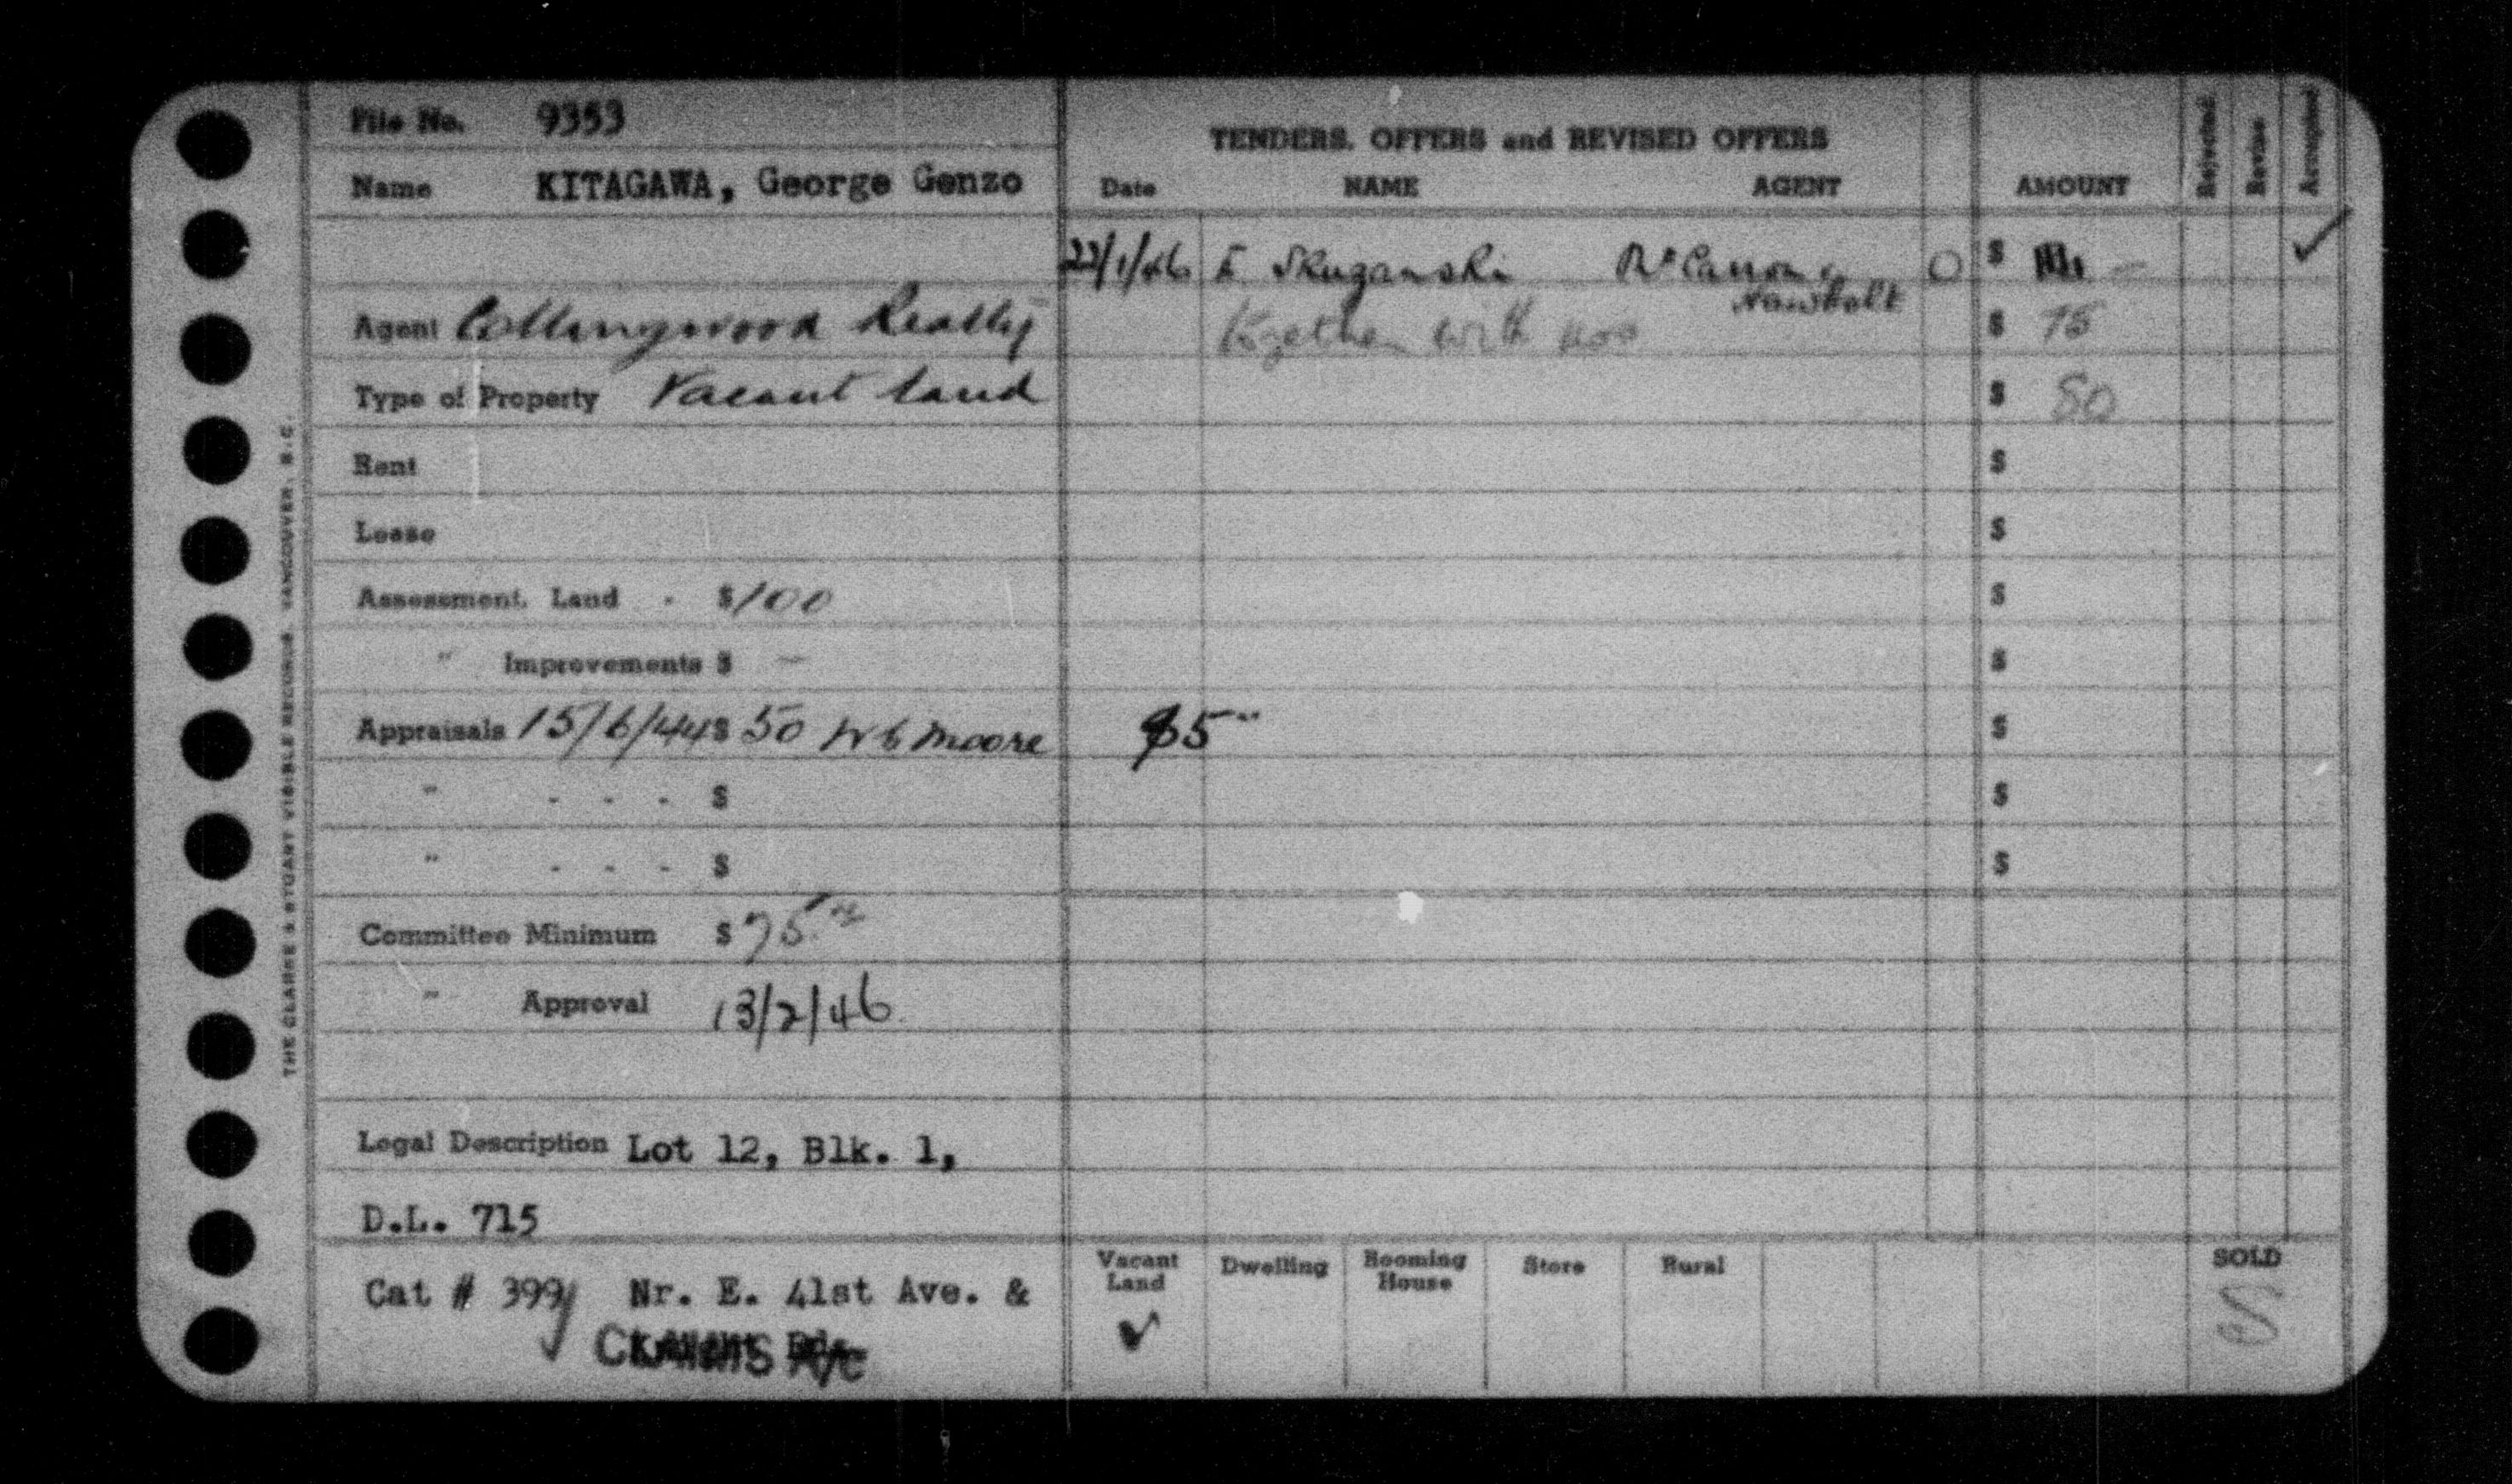 File No. 9353
Name KITAGAWA, George Genzo
Agent Collingwood Realty
Type of Property Vacant land
Rent
Lease
Assessment, Land - $100
" Improvements $ —
Appraisals 15/6/44 $ 50 W E Moore
" - - - $
" - - - $
Committee Minimum $ 75
" Approval 13/2/46
Legal Description Lot 12, Blk. 1,
D.L. 715
Cat # 399 Nr. E. 41st Ave. &
THE CLARKE & STUART VISIBLE RECORDS, VANCOUVER, B.C.
TENDERS, OFFERS and REVISED OFFERS
Date NAME AGENT AMOUNT Rejected Revise Accepted
22/1/46 $ ✓
together with $ 75
$ 80
$
$
$
$
$5 $
$
$
Vacant Land ✓ Dwelling Rooming House Store Rural SOLD
S